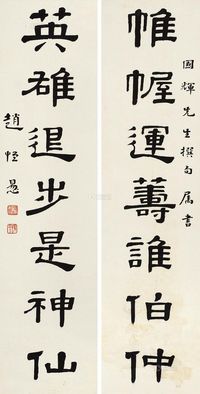 國輝先生撰句屬書
帷幄運籌誰伯仲
英雄退步是神仙
趙恒惕